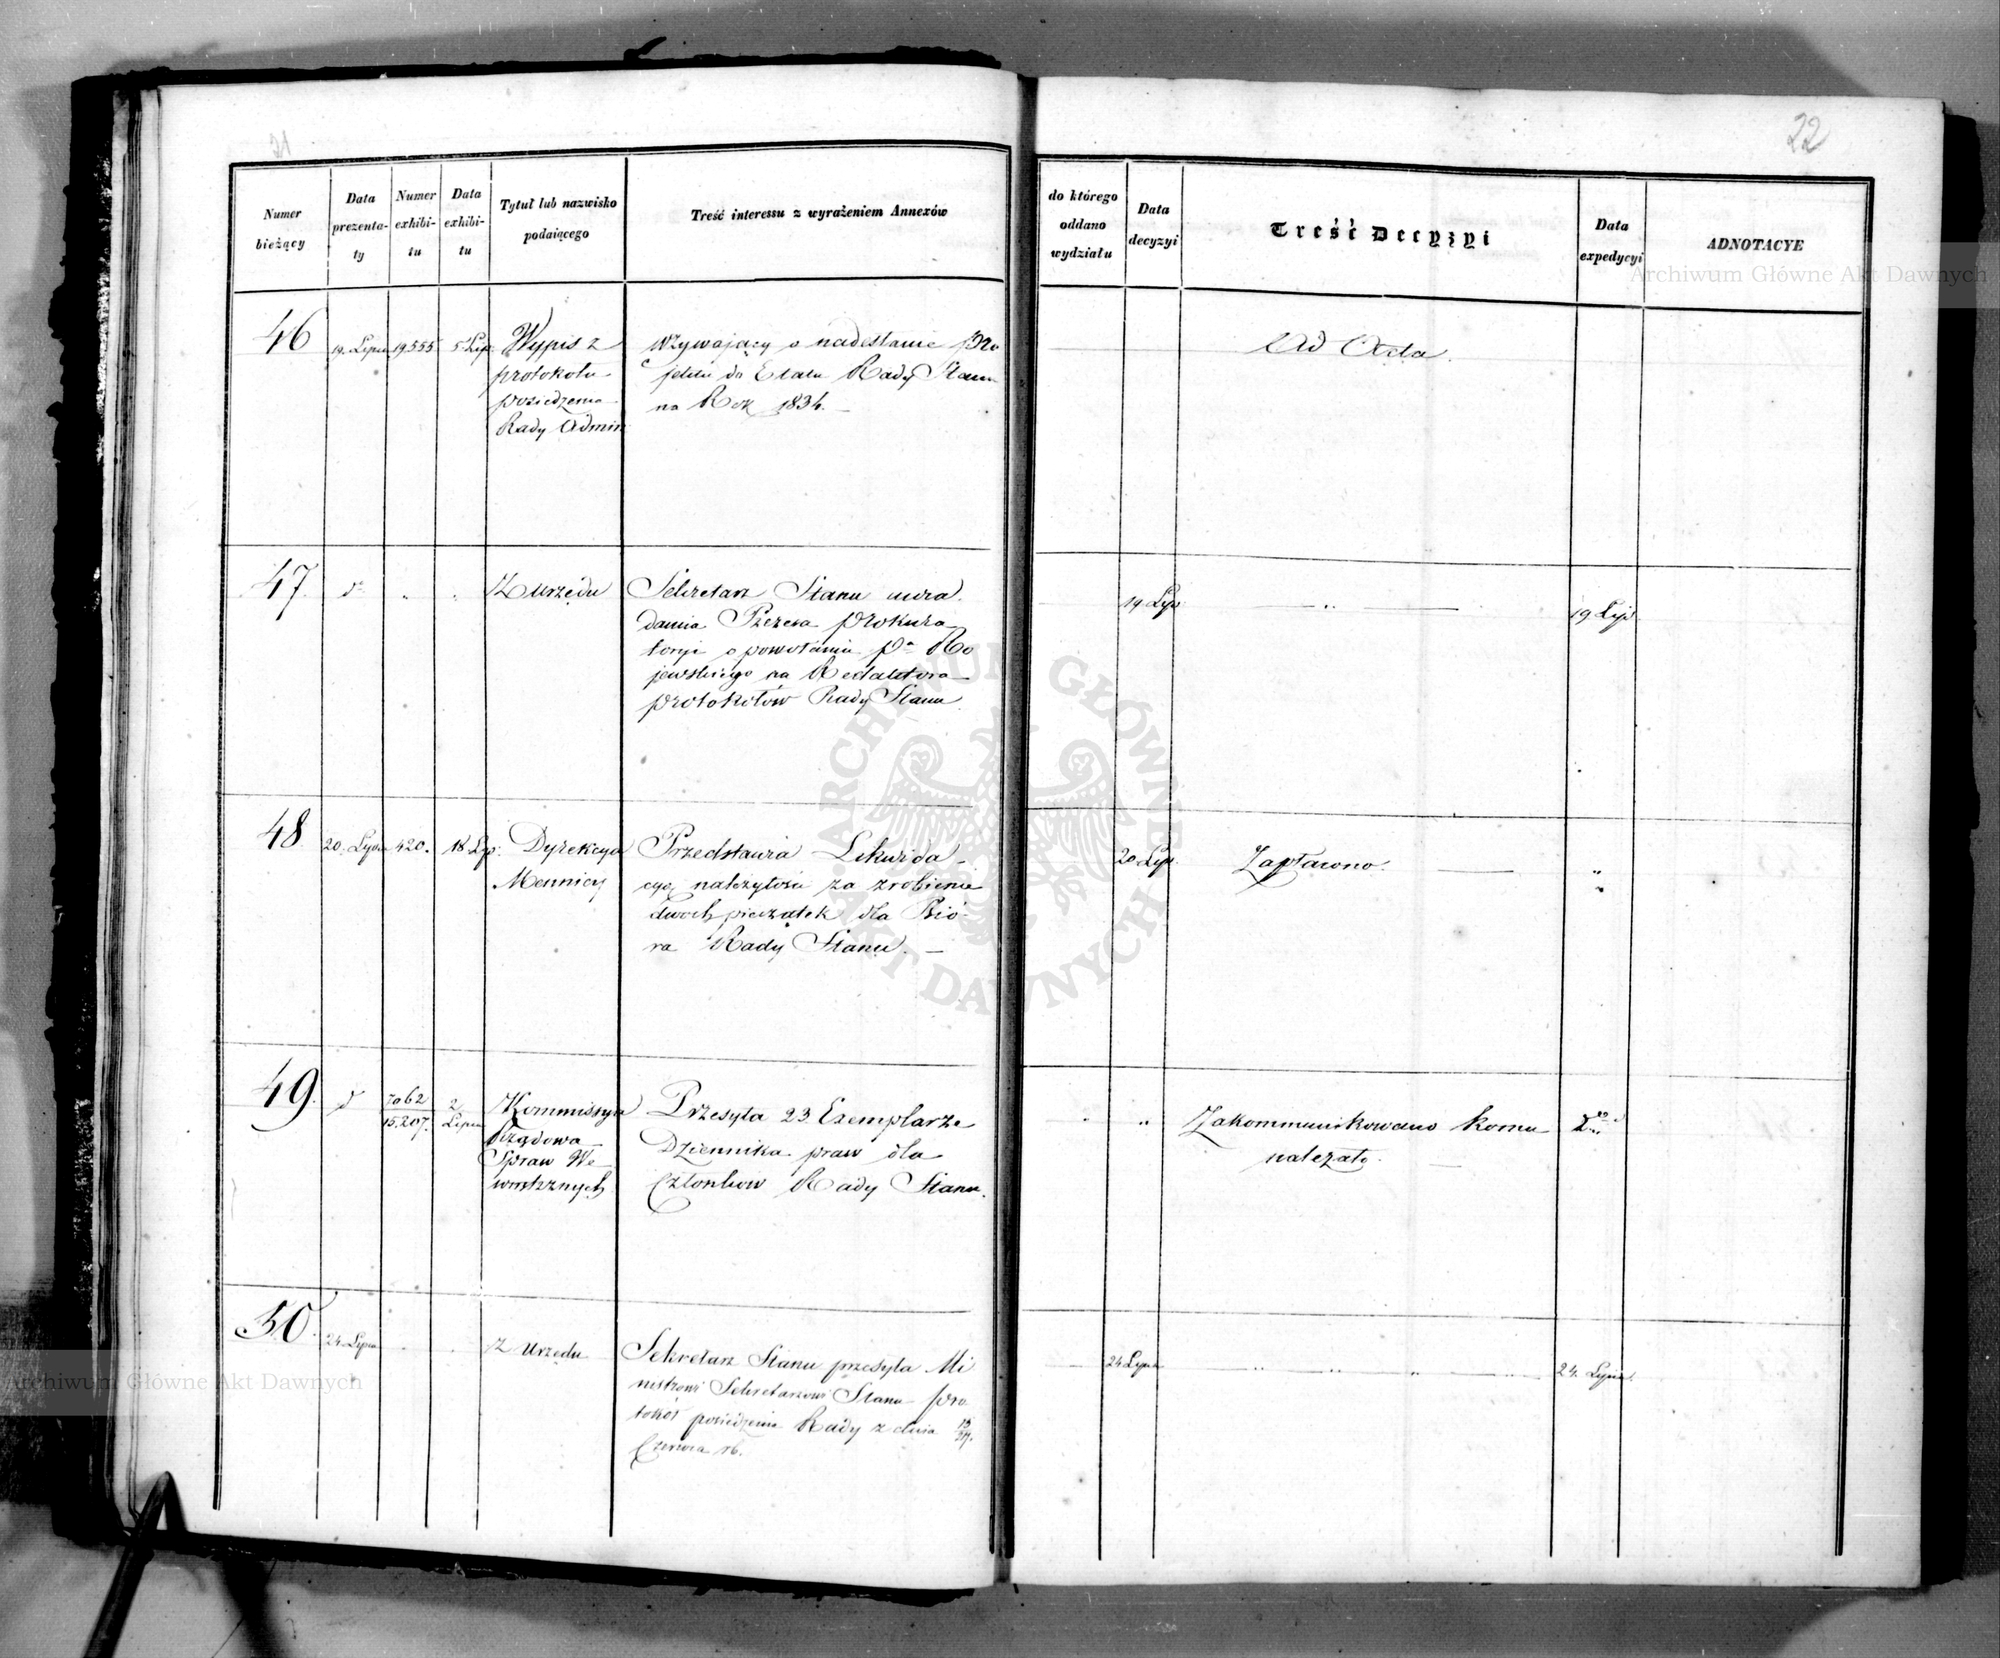 21
22
Numer bieżący
Data prezentaty
Numer exhibitu
Data exhibitu
Tytuł lub nazwisko podaiącego
Treść interessu z wyrażeniem Annexów
do którego oddano wydziału
Data decyzyi
Treść Decyzyi
Data expedycyi
ADNOTACYE
46
19. Lipca
19,555
5 Lip.
Wypis z
protokołu
posiedzenia
Rady Admin
Wzywający o nadesłanie pro
jektu do Etatu Rady Stanu
na Rok 1834.
Ad Acta.
47
do
"
"
Z Urzędu
Sekretarz Stanu uwia
damia Prezesa Prokura
toryi o powołaniu Pa Ro
jewskiego na Redaktora
protokołów Rady Stanu.
19 Lip
"
19 Lip.
48
20. Lipca
420.
18 Lip.
Dyrekcya
Mennicy
Przedstawia Likwida
cyę należytości za zrobienie
dwóch pieczątek dla Bió
ra Rady Stanu.
20 Lip.
Zapłacono.
"
49.
d
7062
15,207.
2
Lipca
Kommissya
Rządowa
Spraw We
wnętrznych
Przesyła 23 Exemplarze
Dziennika praw dla
Członków Rady Stanu.
"
Zakommunikowano komu
należało.
50.
24 Lipca
Z Urzędu
Sekretarz Stanu przesyła Mi
nistrowi Sekretarzowi Stanu pro
tokół posiedzenia Rady z dnia
Czerwca rb.
24 Lipca
24. Lipca.
Archiwum Główne Akt Dawnych
ARCHIWUM GŁÓWNE AKT DAWNYCH
Archiwum Główne Akt Dawnych